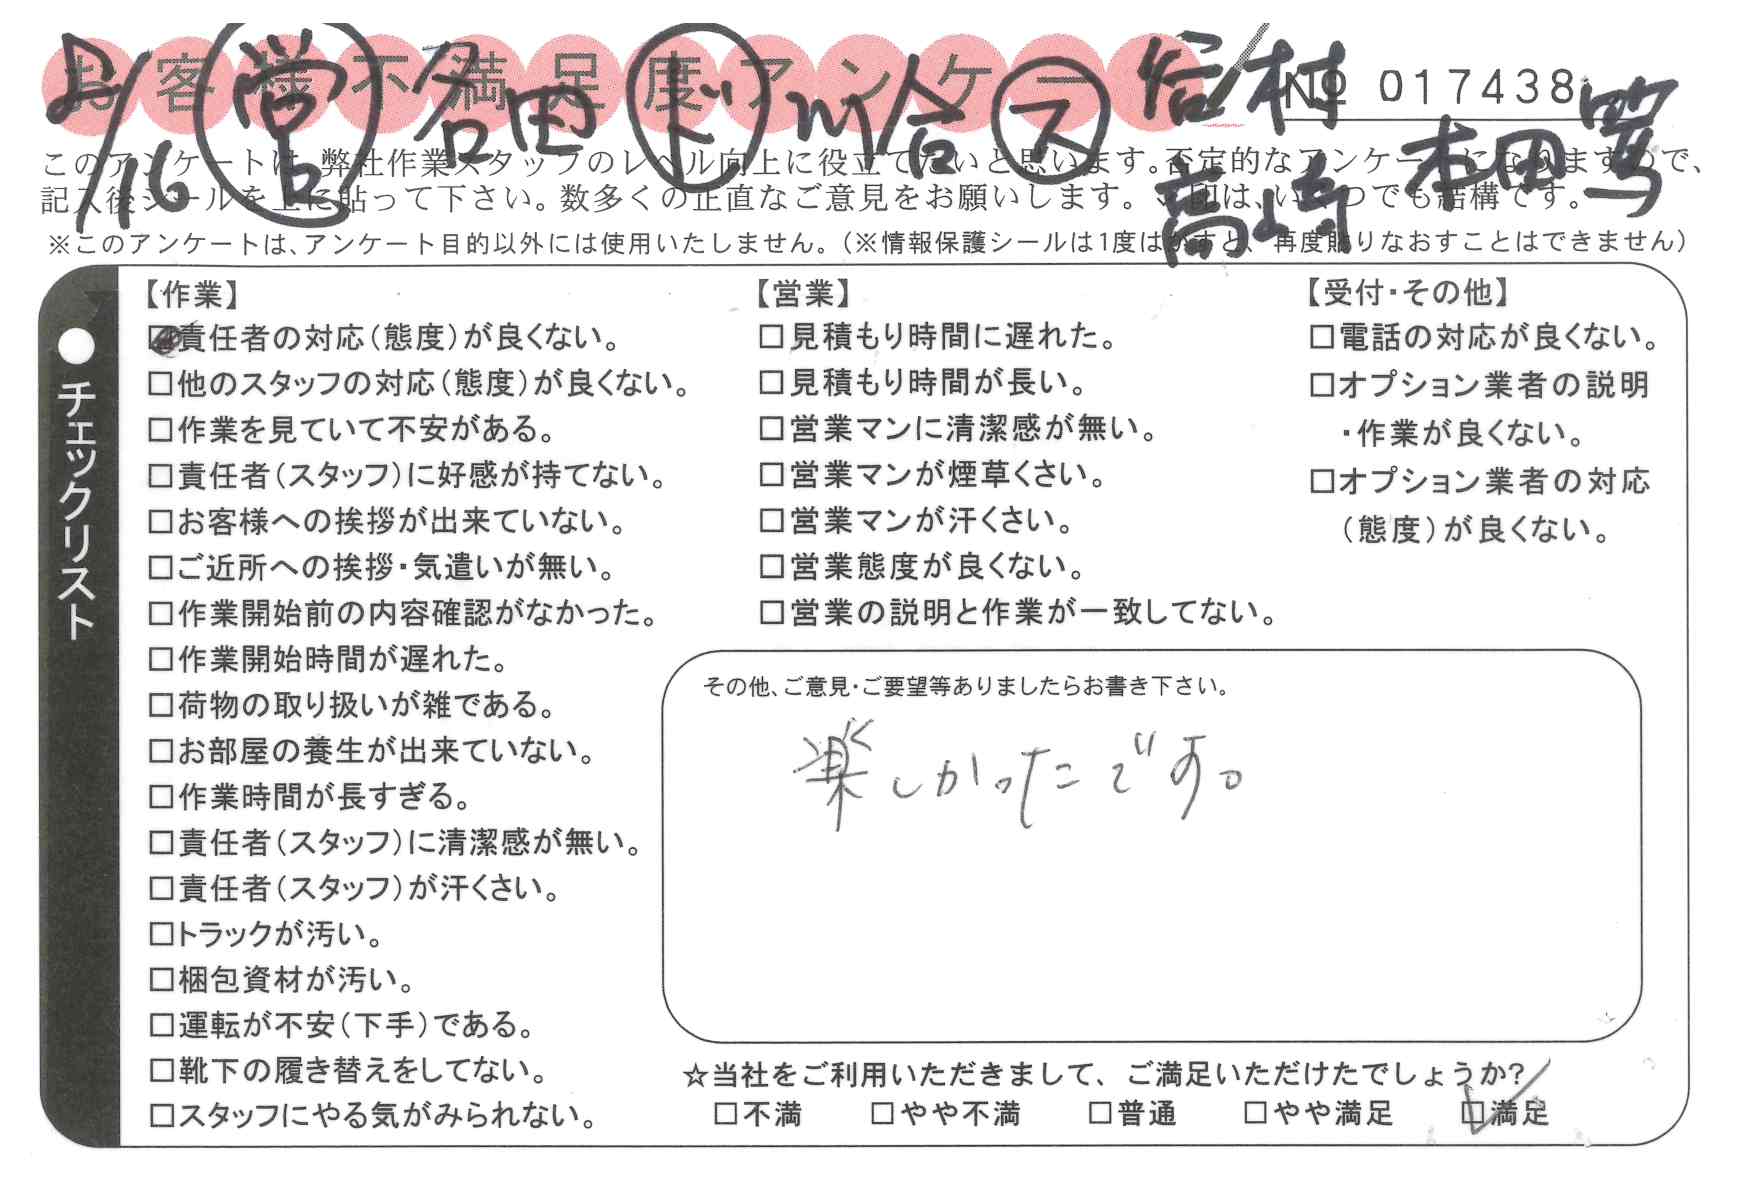 お客様不満足度アンケート
№ 017438
8/16 営 谷田 ド 川合 ス 谷村
高崎 本田篤
このアンケートは、弊社作業スタッフのレベル向上に役立てたいと思います。否定的なアンケートになりますので、
記入後シールを上に貼って下さい。数多くの正直なご意見をお願いします。✓印は、いくつでも結構です。
※このアンケートは、アンケート目的以外には使用いたしません。（※情報保護シールは1度はがすと、再度貼りなおすことはできません）
●チェックリスト
【作業】
□責任者の対応（態度）が良くない。
□他のスタッフの対応（態度）が良くない。
□作業を見ていて不安がある。
□責任者（スタッフ）に好感が持てない。
□お客様への挨拶が出来ていない。
□ご近所への挨拶・気遣いが無い。
□作業開始前の内容確認がなかった。
□作業開始時間が遅れた。
□荷物の取り扱いが雑である。
□お部屋の養生が出来ていない。
□作業時間が長すぎる。
□責任者（スタッフ）に清潔感が無い。
□責任者（スタッフ）が汗くさい。
□トラックが汚い。
□梱包資材が汚い。
□運転が不安（下手）である。
□靴下の履き替えをしてない。
□スタッフにやる気がみられない。
【営業】
□見積もり時間に遅れた。
□見積もり時間が長い。
□営業マンに清潔感が無い。
□営業マンが煙草くさい。
□営業マンが汗くさい。
□営業態度が良くない。
□営業の説明と作業が一致してない。
【受付・その他】
□電話の対応が良くない。
□オプション業者の説明
・作業が良くない。
□オプション業者の対応
（態度）が良くない。
その他、ご意見・ご要望等ありましたらお書き下さい。
楽しかったです。
☆当社をご利用いただきまして、ご満足いただけたでしょうか?
□不満 □やや不満 □普通 □やや満足 ☑満足